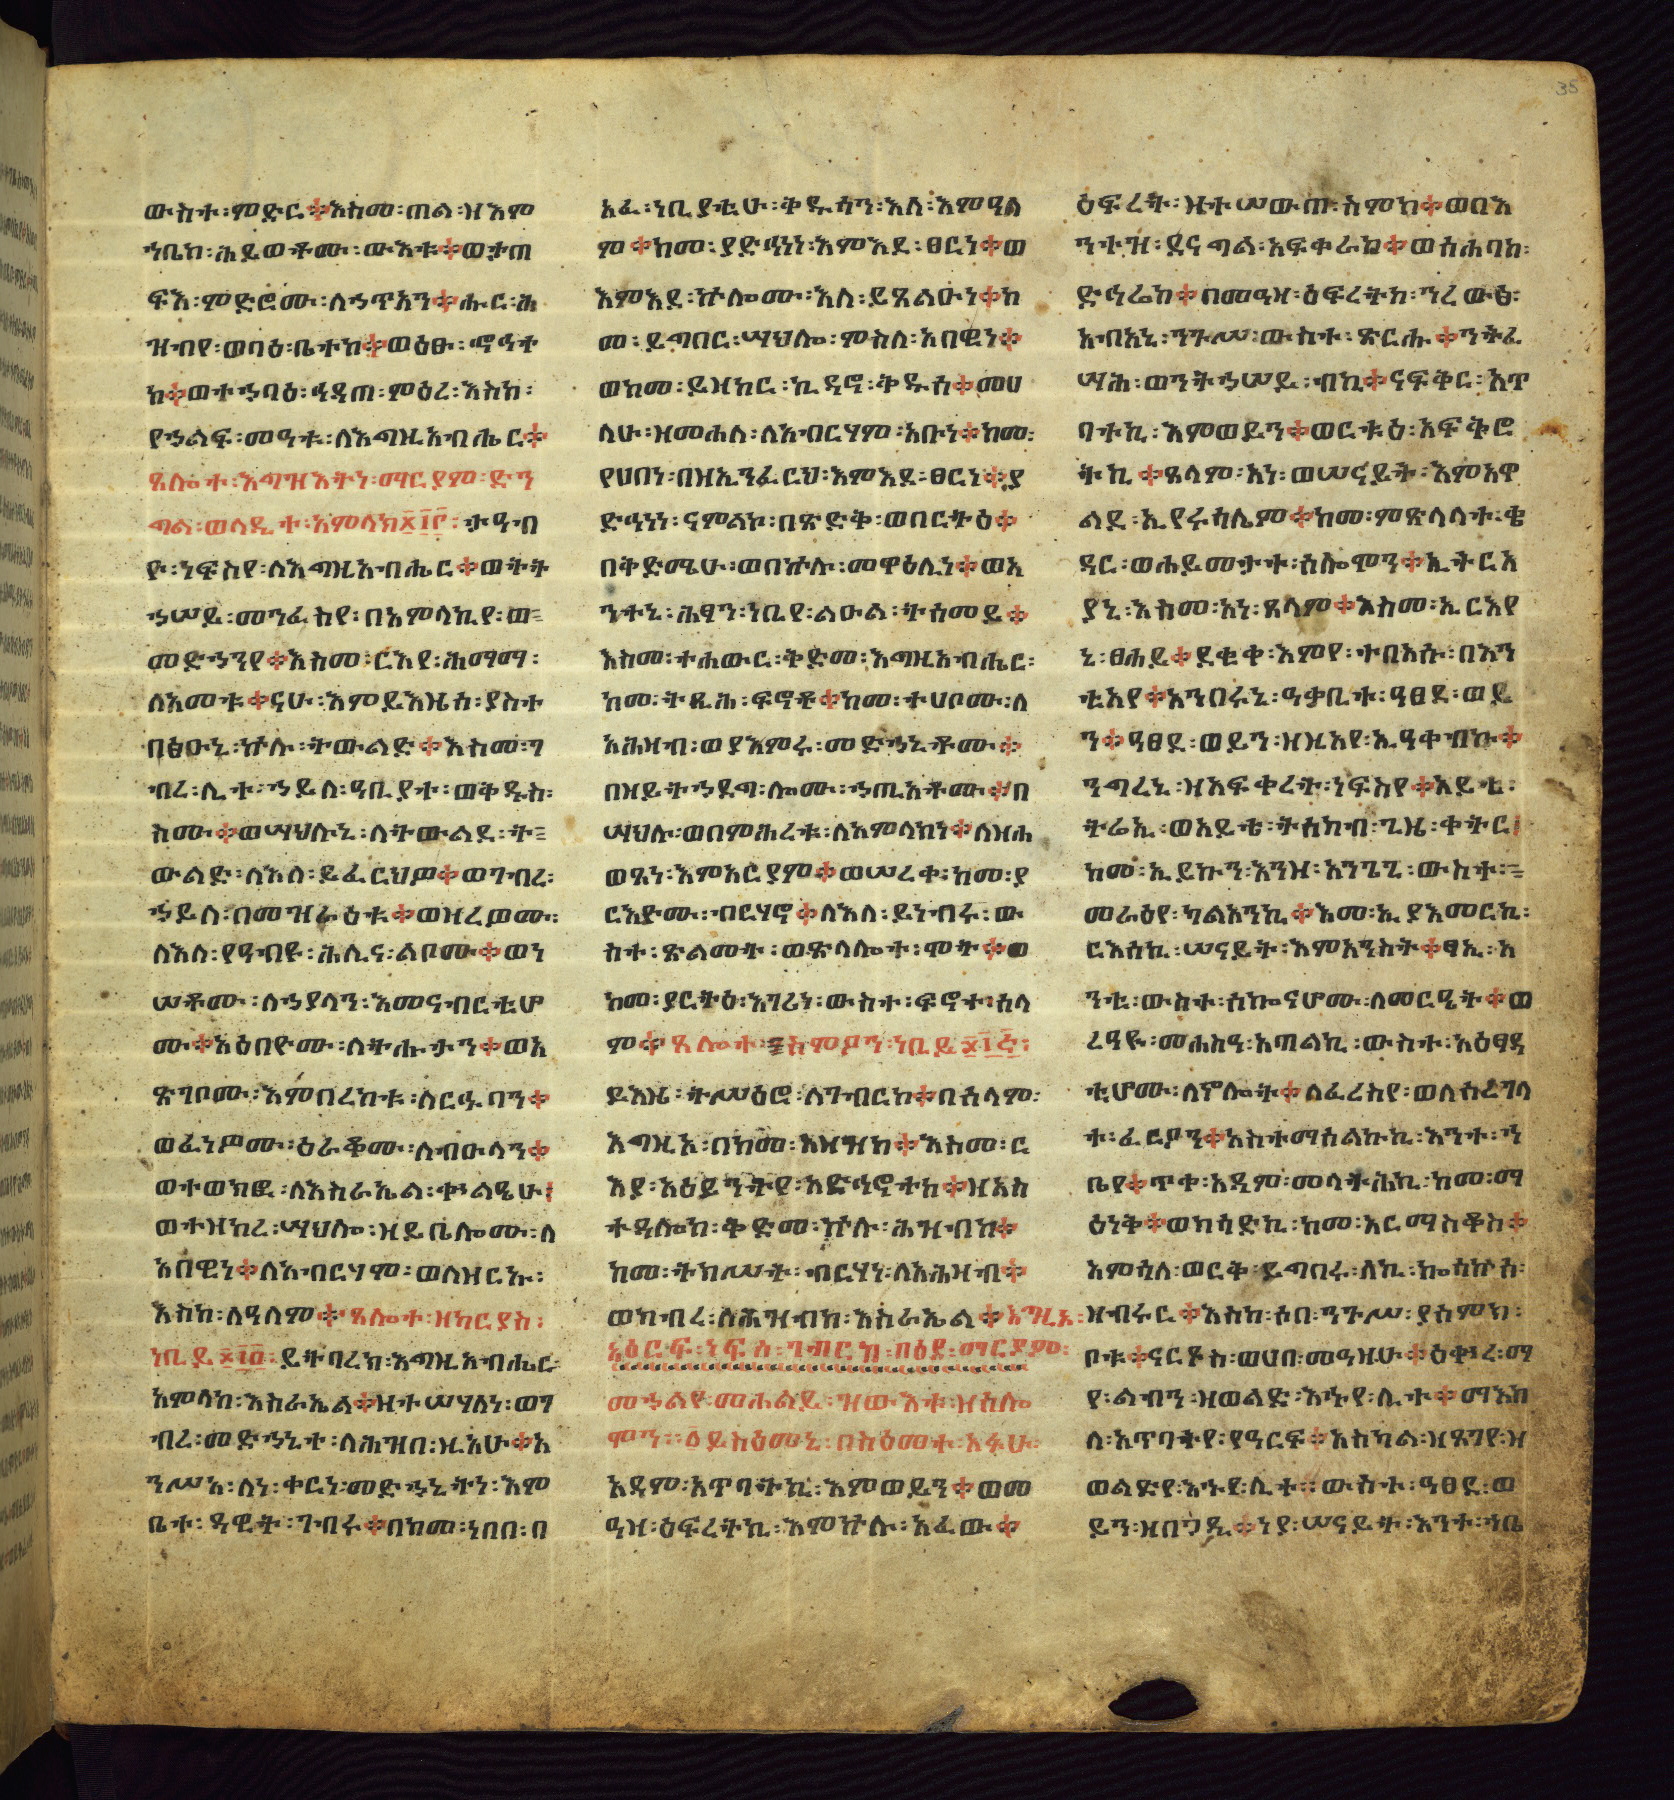 ውስተ፡ምድር፨እስመ፡ጠል፡ዘእም
ኀቤከ፡ሕይወቶሙ፡ውእቱ፨ወታጠ
ፍእ፡ምድሮሙ፡ለኀጥአን፨ሑር፡ሕ
ዝብየ፡ወባዕ፡ቤተከ፨ወዕፁ፡ኆኅተ
ከ፨ወተኀባዕ፡ኅዳጠ፡ምዕረ፡እስከ፡
የኀልፍ፡መዓቱ፡ለእግዚአብሔር፨
ጸሎተ፡እግዝእትነ፡ማርያም፡ድን
ግል፡ወላዲተ፡አምላክ፲፡ ታዓብ
ዮ፡ነፍስየ፡ለእግዚአብሔር፨ወትት
ኀሠይ፡መንፈስየ፡በአምላኪየ፡ወ
መድኀንየ፨እስመ፡ርእየ፡ሕማማ፡
ለአመቱ፨ናሁ፡እምይእዜሰ፡ያስተ
በፅዑኒ፡ኵሉ፡ትውልድ፨እስመ፡ገ
ብረ፡ሊተ፡ኀይለ፡ዓቢያተ፡ወቅዱስ፡
ስሙ፨ወሣህሉኒ፡ለትውልደ፡ት
ውልድ፡ለእለ፡ይፈርህዎ፨ወገብረ፡
ኀይለ፡በመዝራዕቱ፨ወዘረዎሙ፡
ለእለ፡የዓብዩ፡ሕሊና፡ልቦሙ፨ወነ
ሠቶሙ፡ለኀያላን፡እመናብርቲሆ
ሙ፨አዕበዮሙ፡ለትሑታን፨ወአ
ጽገቦሙ፡እምበረከቱ፡ለርኁባን፨
ወፈነዎሙ፡ዕራቆሙ፡ለብዑላን፨
ወተወክፎ፡ለእስራኤል፡ቍልዔሁ፡
ወተዘከረ፡ሣህሎ፡ዘይቤሎሙ፡ለ
አበዊነ፨ለአብርሃም፡ወለዘርኡ፡
እስከ፡ለዓለም፨ጸሎተ፡ዘካርያስ፡
ነቢይ ፡ይትባረክ፡እግዚአብሔር፡
አምላከ፡እስራኤል፨ዘተሣሃለነ፡ወገ
ብረ፡መድኀኒተ፡ለሕዝበ፡ዚአሁ፨አ
ንሥአ፡ለነ፡ቀርነ፡መድኀኒትነ፡እም
ቤተ፡ዳዊት፡ገብሩ፨በከመ፡ነበበ፡በ
አፈ፡ነቢያቲሁ፡ቅዱሳን፡እለ፡እምዓለ
ም፨ከመ፡ያድኅነነ፡እምእደ፡ፀርነ፨ወ
እምእደ፡ኵሎሙ፡እለ፡ይጸልዑነ፨ከ
መ፡ይግበር፡ሣህሎ፡ምስለ፡አበዊነ፨
ወከመ፡ይዘከር፡ኪዳኖ፡ቅዱስ፨መሀ
ላሁ፡ዘመሐለ፡ለአብርሃም፡አቡነ፨ከመ፡
የሀበነ፡በዘኢንፈርህ፡እምእደ፡ፀርነ፨ያ
ድኅነነ፡ናምልኮ፡በጽድቅ፡ወበርትዕ፨
በቅድሜሁ፡ወበኵሉ፡መዋዕሊነ፨ወአ
ንተኒ፡ሕፃን፡ነቢየ፡ልዑል፡ትሰመይ፨
እስመ፡ተሐውር፡ቅድመ፡እግዚአብሔር፡
ከመ፡ትጺሕ፡ፍኖቶ፨ከመ፡ተሀቦሙ፡ለ
አሕዛብ፡ወያእምሩ፡መድኀኒቶሙ፨
በዘይትኀደግ፡ሎሙ፡ኀጢአቶሙ፨በ
ሣህሉ፡ወበምሕረቱ፡ለአምላክነ፨ለዘሐ
ወጸነ፡እምአርያም፨ወሠረቀ፡ከመ፡ያ
ርእዮሙ፡ብርሃኖ፨ለእለ፡ይነብሩ፡ው
ስተ፡ጽልመት፡ወጽላሎተ፡ሞት፨ወ
ከመ፡ያርትዕ፡እገሪነ፡ውስተ፡ፍኖተ፡ሰላ
ም፨ጸሎተ፡ ስምዖን፡ነቢይ
ይእዜ፡ትሥዕሮ፡ለገብርከ፨በሰላም፡
እግዚአ፡በከመ፡አዘዝከ፨እስመ፡ር
እያ፡አዕይንትየ፡አድኅኖተከ፨ዘአስ
ተዳሎከ፡ቅድመ፡ኵሉ፡ሕዝብከ፨
ከመ፡ትክሥት፡ብርሃነ፡ለአሕዛብ፨
ወክብረ፡ለሕዝብከ፡እስራኤል፨እግዚኦ፡
አዕርፍ፡ነፍሰ፡ገብርከ፡በዕደ፡ማርያም፡
መኀልየ፡መሐልይ፡ዝውእቱ፡ዘሰሎ
ሞን፡ይስዕመኒ፡በስዕመተ፡አፉሁ፡
አዳም፡አጥባትኪ፡እምወይን፨ወመ
ዓዛ፡ዕፍረትኪ፡እምኵሉ፡አፈው፨
ዕፍረት፡ዘተሠውጠ፡ስምከ፨ወበእ
ንተዝ፡ደናግል፡አፍቀራከ፨ወሰሐባከ፡
ድኅሬከ፨በመዓዛ፡ዕፍረትከ፡ንረውፅ፡
አብአኒ፡ንጉሥ፡ውስተ፡ጽርሑ፨ንትፈ
ሣሕ፡ወንትኀሠይ፡ብኪ፨ናፍቅር፡አጥ
ባተኪ፡እምወይን፨ወርቱዕ፡አፍቅሮ
ትኪ፨ጸላም፡አነ፡ወሠናይት፡እምአዋ
ልደ፡ኢየሩሳሌም፨ከመ፡ምጽላላተ፡ቄ
ዳር፡ወሐይመታተ፡ሰሎሞን፨ኢትርአ
ያኒ፡እስመ፡አነ፡ጸላም፨እስመ፡ኢርእየ
ኒ፡ፀሐይ፨ደቂቀ፡እምየ፡ተበአሱ፡በእን
ቲአየ፨አንበሩኒ፡ዓቃቢተ፡ዓፀደ፡ወይ
ን፨ዓፀደ፡ወይን፡ዘዚአየ፡ኢዓቀብኩ፨
ንግረኒ፡ዘአፍቀረት፡ነፍስየ፨አይቴ፡
ትሬኢ፡ወአይቴ፡ትሰክብ፡ጊዜ፡ቀትር፡
ከመ፡ኢይኩን፡እንዘ፡አንገጊ፡ውስተ፡
መራዕየ፡ካልአንኪ፨እመ፡ኢያእመርኪ፡
ርእሰኪ፡ሠናይት፡እምአንስት፨ፃኢ፡አ
ንቲ፡ውስተ፡ሰኰናሆሙ፡ለመርዔት፨ወ
ረዓዪ፡መሐስዓ፡አጣልኪ፡ውስተ፡አዕፃዳ
ቲሆሙ፡ለኖሎት፨ለፈረስየ፡ወለሰረገላ
ተ፡ፈርዖን፨አስተማሰልኩኪ፡እንተ፡ኀ
ቤየ፨ጥቀ፡አዳም፡መላትሕኪ፡ከመ፡ማ
ዕነቅ፨ወክሳድኪ፡ከመ፡አርማስቆስ፨
አምሳለ፡ወርቅ፡ይግበሩ፡ለኪ፡ኰሳኵሰ፡
ዘብሩር፨እስከ፡ሶበ፡ንጉሥ፡ያሰምክ፡
ቦቱ፨ናርዶስ፡ወሀበ፡መዓዛሁ፨ዕቍረ፡ማ
የ፡ልብን፡ዘወልድ፡እኁየ፡ሊተ፨ማእከ
ለ፡አጥባትየ፡የዓርፍ፨አስካል፡ዘጸገየ፡ዘ
ወልድየ፡እኁየ፡ሊተ፡ውስተ፡ዓፀደ፡ወ
ይን፡ዘበጋዲ፨ነያ፡ሠናይት፡እንተ፡ኀቤ